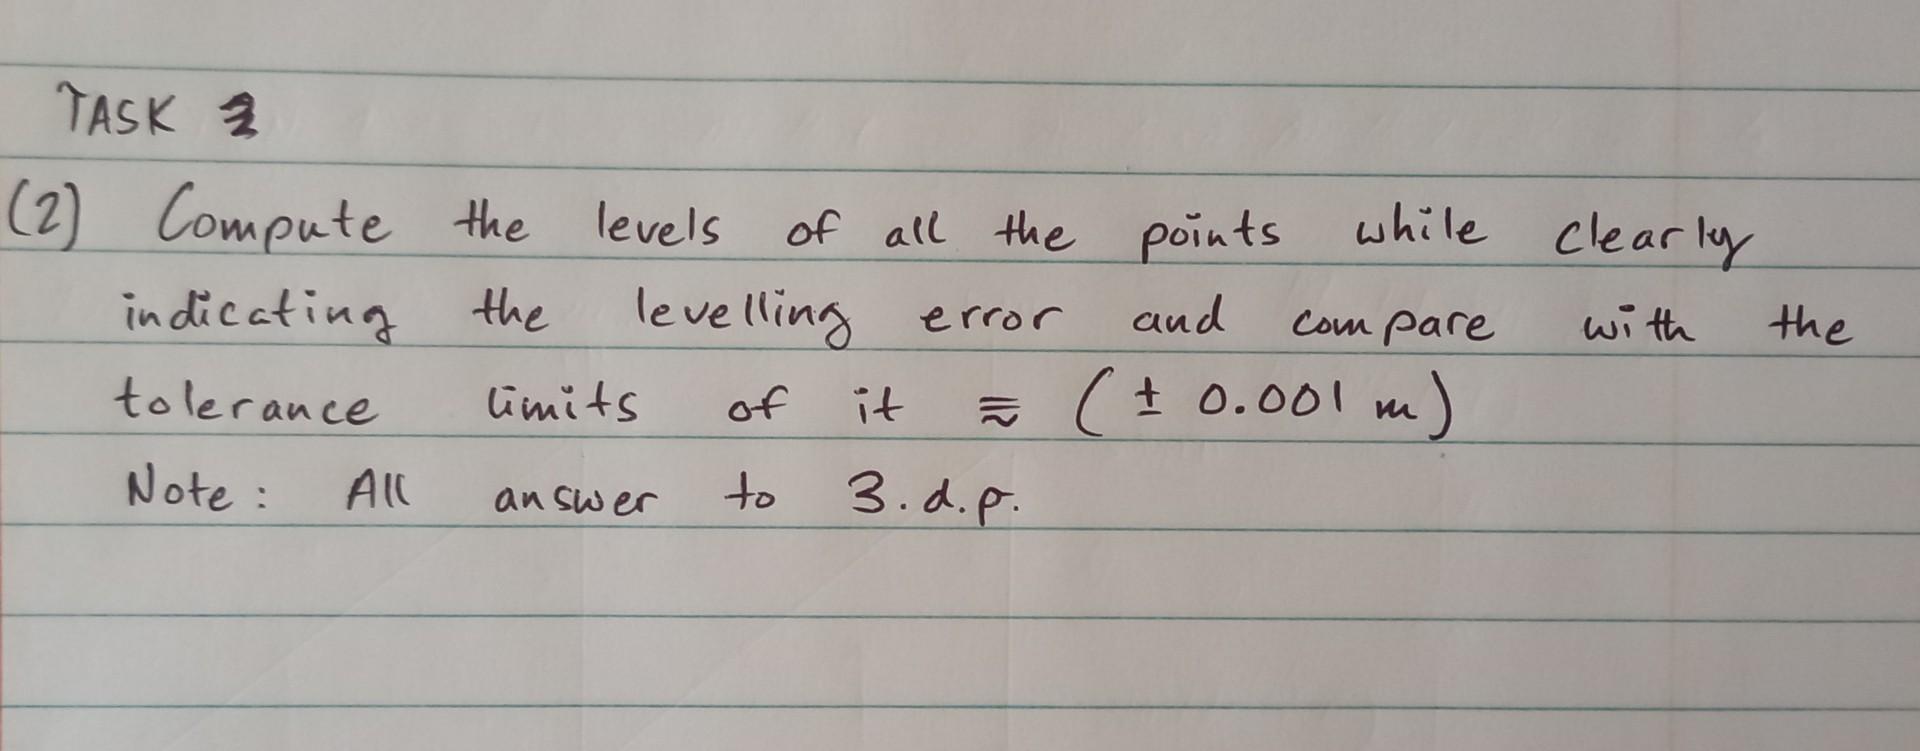 TASK 2
(2) Compute the levels of all the points while clearly
indicating the levelling error and compare with the
tolerance limits of it ≈ (± 0.001 m)
Note: All answer to 3.d.p.